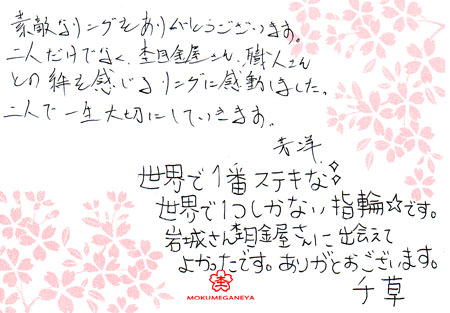 素敵なリングをありがとうございます。
二人だけでなく、杢目金屋さん、職人さん
との絆を感じるリングに感動しました。
二人で一生大切にしていきます。
芳洋
世界で1番ステキな
世界で1つしかない指輪☆です。
岩城さん杢目金屋さんに出会えて
よかったです。ありがとおございます。
千草
MOKUMEGANEYA